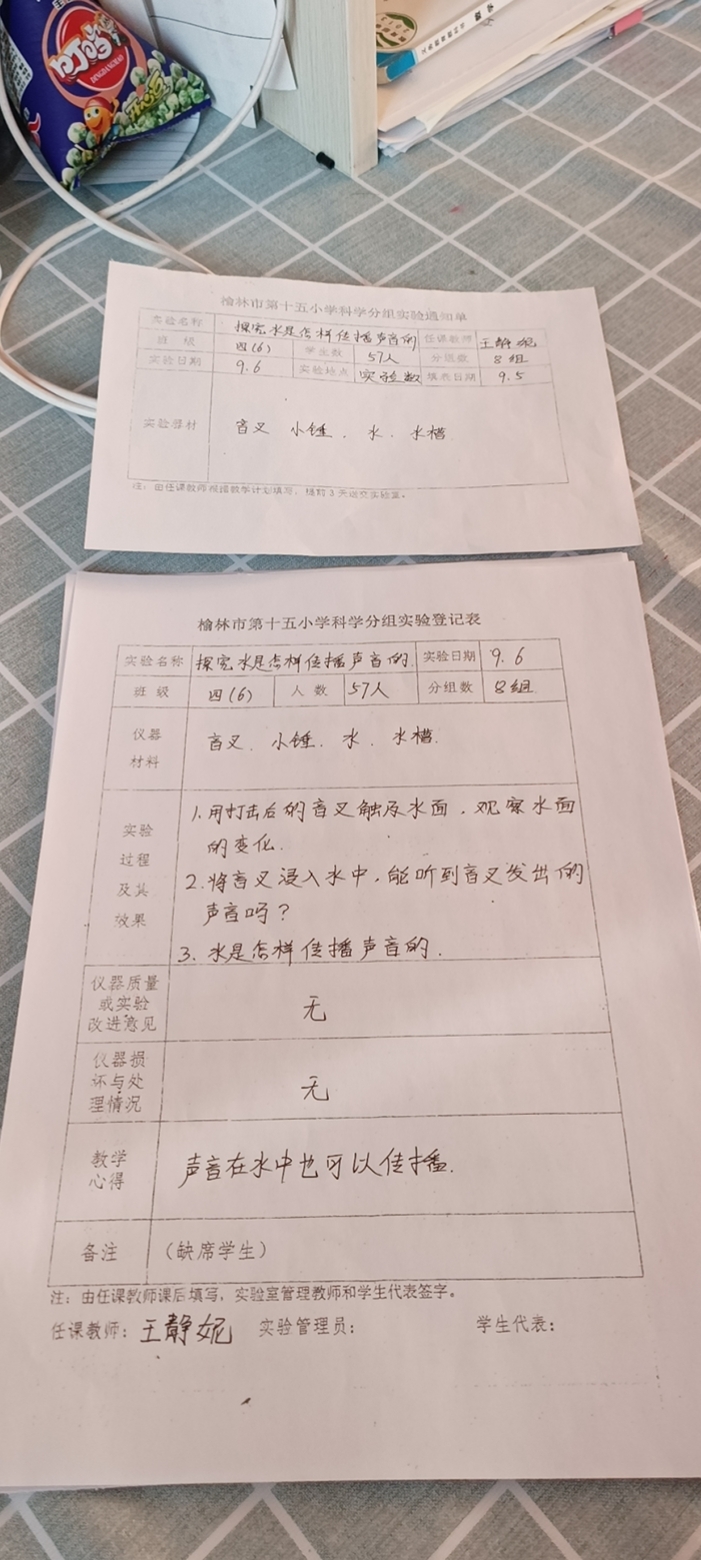 叮当
DINGDANGMAO
数学
榆林市第十五小学科学分组实验通知单
实验名称 探究水是怎样传播声音的 任课教师 王静妮
班 级 四(6) 学生数 57人 分组数 8组
实验日期 9.6 实验地点 实验数 填表日期 9.5
实验器材 音叉 小锤. 水. 水槽
注：由任课教师根据教学计划填写，提前3天送交实验室。
榆林市第十五小学科学分组实验登记表
实验名称 探究水是怎样传播声音的. 实验日期 9.6
班 级 四(6) 人 数 57人 分组数 8组
仪器
材料
音叉. 小锤. 水. 水槽.
实验
过程
及其
效果
1.用打击后的音叉触及水面.观察水面
的变化.
2.将音叉浸入水中,能听到音叉发出的
声音吗?
3.水是怎样传播声音的.
仪器质量
或实验
改进意见
无
仪器损
坏与处
理情况
无
教学
心得
声音在水中也可以传播.
备注 （缺席学生）
注：由任课教师课后填写，实验室管理教师和学生代表签字。
任课教师：王静妮 实验管理员： 学生代表：